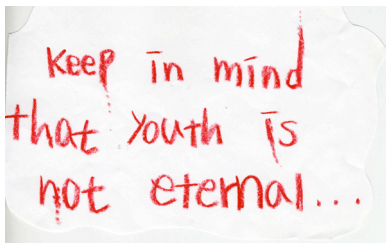 keep in mind
that youth is
not eternal...